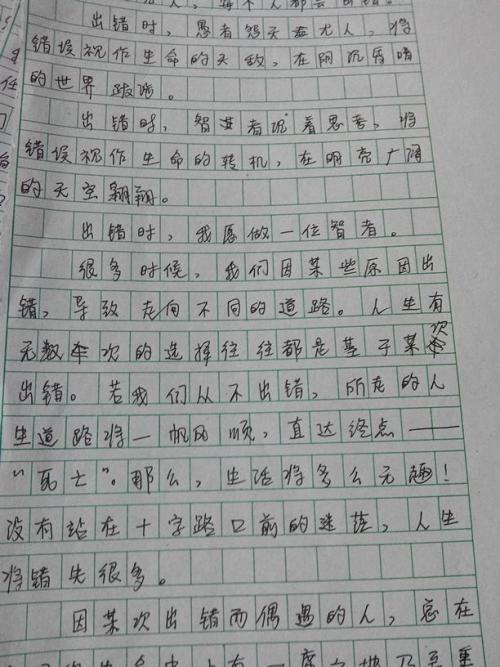 人，每个人都会出错。
出错时，愚者怨天尤人，将
错误视作生命的天敌，在阴沉昏暗
的世界跋涉。
出错时，智者沉着思考，将
错误视作生命的转机，在明亮广阔
的天空翱翔。
出错时，我愿做一位智者。
很多时候，我们因某些原因出
错，导致走向不同的道路。人生有
无数次的选择往往都是基于某次
出错。若我们从不出错，所走的人
生道路将一帆风顺，直达终点——
“死亡”。那么，生活将多么无趣！
没有站在十字路口前的迷茫，人生
将错失很多。
因某次出错而偶遇的人，总在